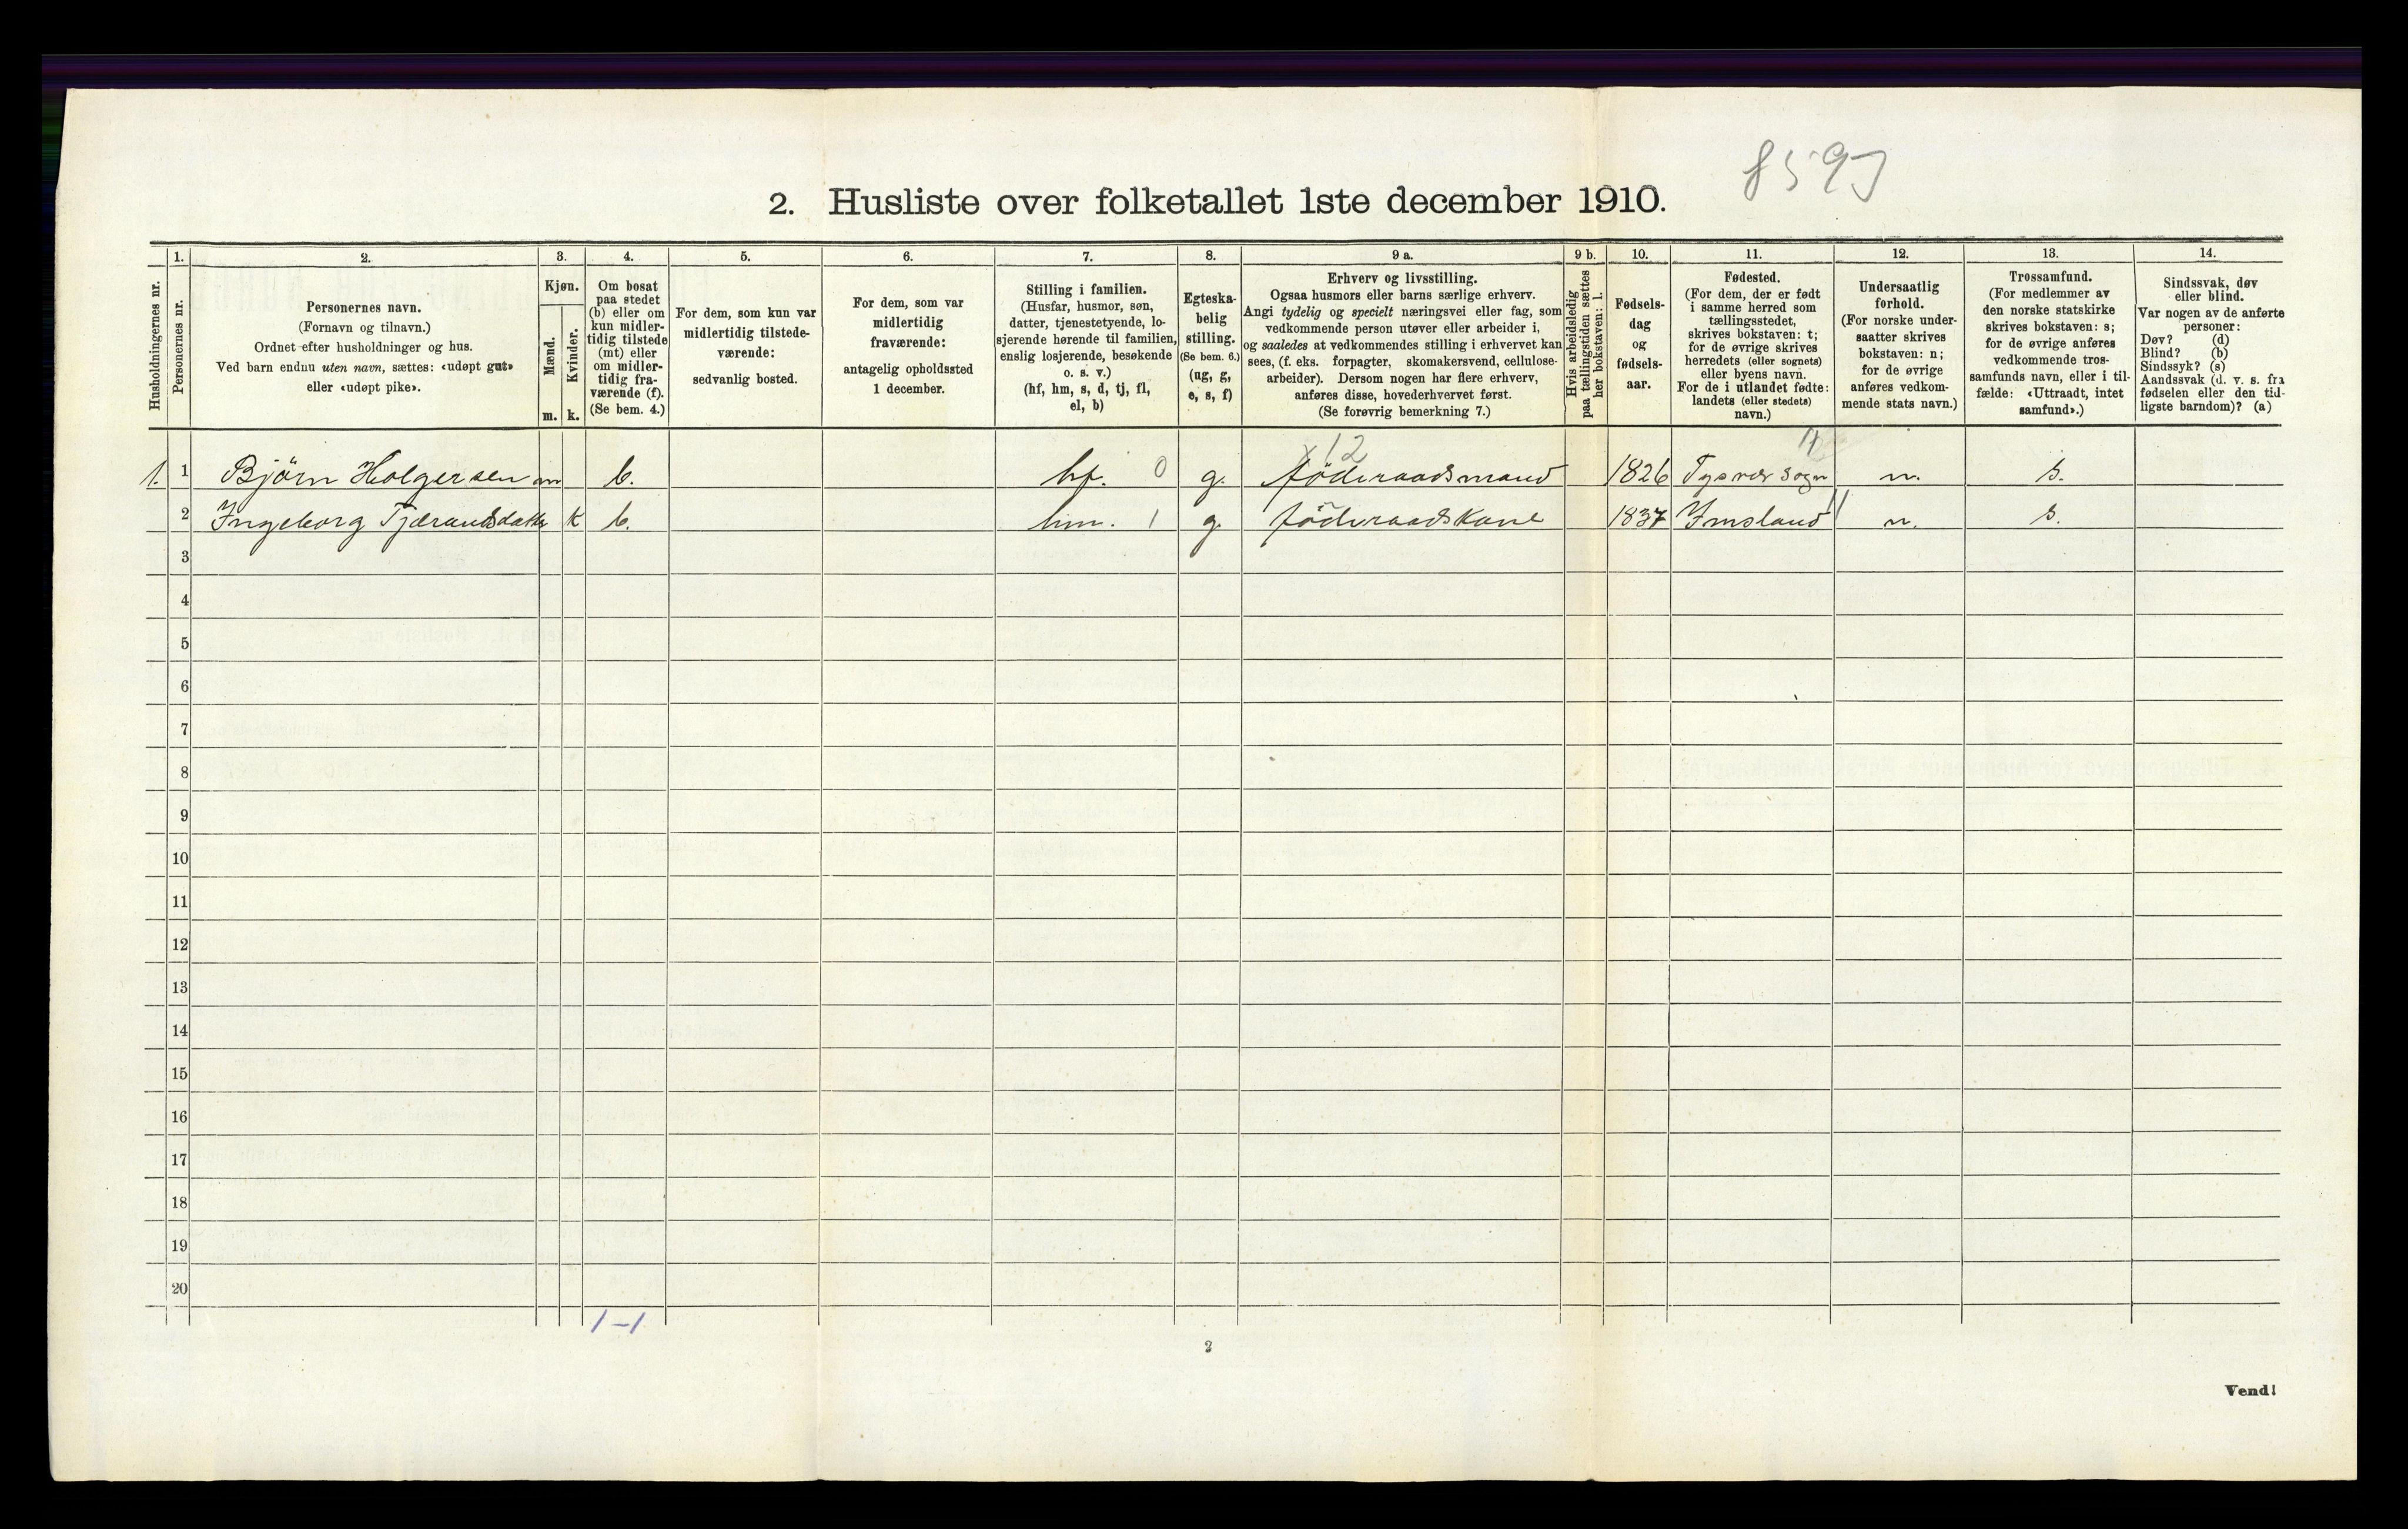 8597
2. Husliste over folketallet 1ste december 1910.
Husholdningernes nr.
1.
Personernes nr.
2.
Personernes navn.
(Fornavn og tilnavn.)
Ordnet efter husholdninger og hus.
Ved barn endnu uten navn, sættes: «udøpt gut»
eller «udøpt pike».
3.
Kjøn.
Mænd.
m.
Kvinder.
k.
4.
Om bosat
paa stedet
(b) eller om
kun midler-
tidig tilstede
(mt) eller
om midler-
tidig fra-
værende (f).
(Se bem. 4.)
5.
For dem, som kun var
midlertidig tilstede-
værende:
sedvanlig bosted.
6.
For dem, som var
midlertidig
fraværende:
antagelig opholdssted
1 december.
7.
Stilling i familien.
(Husfar, husmor, søn,
datter, tjenestetyende, lo-
sjerende hørende til familien,
enslig losjerende, besøkende
o. s. v.)
(hf, hm, s, d, tj, fl,
el, b)
8.
Egteska-
belig
stilling.
(Se bem. 6.)
(ug, g,
e, s, f)
9 a.
Erhverv og livsstilling.
Ogsaa husmors eller barns særlige erhverv.
Angi tydelig og specielt næringsvei eller fag, som
vedkommende person utøver eller arbeider i,
og saaledes at vedkommendes stilling i erhvervet kan
sees, (f. eks. forpagter, skomakersvend, cellulose-
arbeider). Dersom nogen har flere erhverv,
anføres disse, hovederhvervet først.
(Se forøvrig bemerkning 7.)
9 b.
Hvis arbeidsledig
paa tællingstiden sættes
her bokstaven: l.
10.
Fødsels-
dag
og
fødsels-
aar.
11.
Fødested.
(For dem, der er født
i samme herred som
tællingsstedet,
skrives bokstaven: t;
for de øvrige skrives
herredets (eller sognets)
eller byens navn.
For de i utlandet fødte:
landets (eller stedets)
navn.)
12.
Undersaatlig
forhold.
(For norske under-
saatter skrives
bokstaven: n;
for de øvrige
anføres vedkom-
mende stats navn.)
13.
Trossamfund.
(For medlemmer av
den norske statskirke
skrives bokstaven: s;
for de øvrige anføres
vedkommende tros-
samfunds navn, eller i til-
fælde: «Uttraadt, intet
samfund».)
14.
Sindssvak, døv
eller blind.
Var nogen av de anførte
personer:
Døv? (d)
Blind? (b)
Sindssyk? (s)
Aandssvak (d. v. s. fra
fødselen eller den tid-
ligste barndom)? (a)
x12 11
1. 1 Björn Holgersen m b. hf. 0 g. föderaadsmand 1826 Tysvær sogn n. s.
2 Ingeborg Tjærandsdatter k b. hm. 1 g. föderaadskone 1837 Imsland 11 n. s.
3
4
5
6
7
8
9
10
11
12
13
14
15
16
17
18
19
20
1-1
2
Vend!